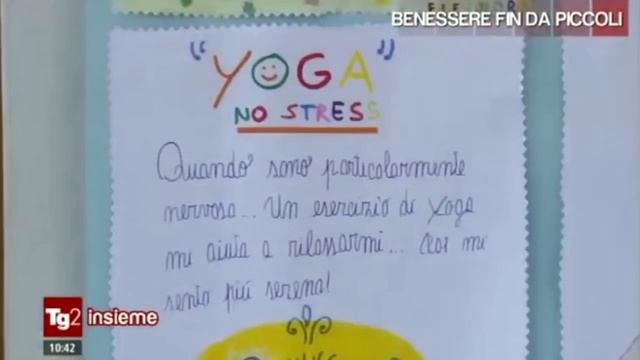 BENESSERE FIN DA PICCOLI
"YOGA"
NO STRESS
Quando sono particolarmente
nervosa... Un esercizio di yoga
mi aiuta a rilassarmi... Così mi
sento più serena!
Tg2 insieme
10:42